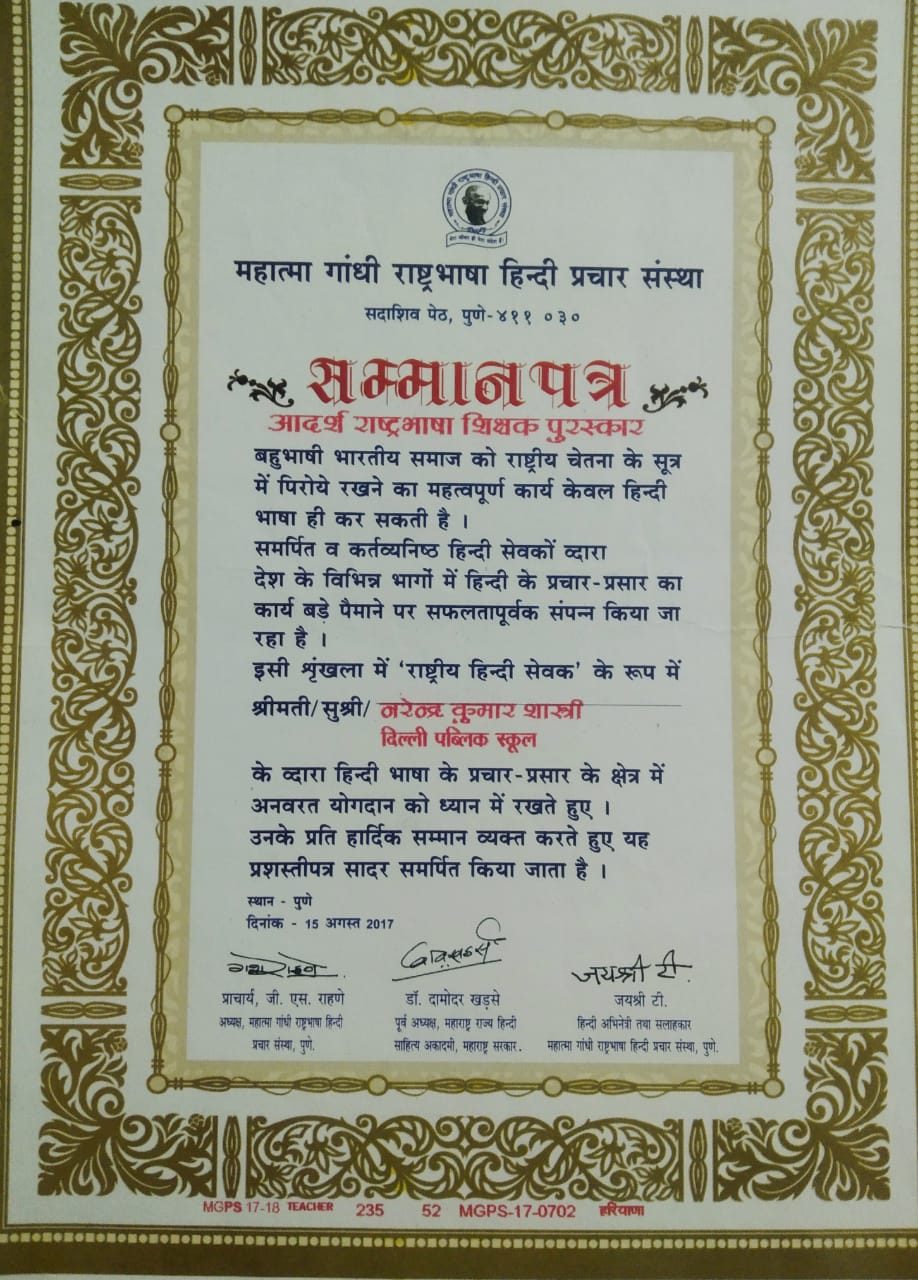 महात्मा गांधी राष्ट्रभाषा हिन्दी प्रचार संस्था
सदाशिव पेठ, पुणे-४११ ०३०
सम्मानपत्र
आदर्श राष्ट्रभाषा शिक्षक पुरस्कार
बहुभाषी भारतीय समाज को राष्ट्रीय चेतना के सूत्र
में पिरोये रखने का महत्वपूर्ण कार्य केवल हिन्दी
भाषा ही कर सकती है ।
समर्पित व कर्तव्यनिष्ठ हिन्दी सेवकों व्दारा
देश के विभिन्न भागों में हिन्दी के प्रचार-प्रसार का
कार्य बड़े पैमाने पर सफलतापूर्वक संपन्न किया जा
रहा है ।
इसी श्रृंखला में ‘राष्ट्रीय हिन्दी सेवक’ के रूप में
श्रीमती/सुश्री/ नरेन्द्र कुमार शास्त्री
दिल्ली पब्लिक स्कूल
के व्दारा हिन्दी भाषा के प्रचार-प्रसार के क्षेत्र में
अनवरत योगदान को ध्यान में रखते हुए ।
उनके प्रति हार्दिक सम्मान व्यक्त करते हुए यह
प्रशस्तीपत्र सादर समर्पित किया जाता है ।
स्थान - पुणे
दिनांक - 15 अगस्त 2017
जयश्री टी.
प्राचार्य, जी. एस. राहणे डॉ. दामोदर खड़से जयश्री टी.
अध्यक्ष, महात्मा गांधी राष्ट्रभाषा हिन्दी पूर्व अध्यक्ष, महाराष्ट्र राज्य हिन्दी हिन्दी अभिनेत्री तथा सलाहकार
प्रचार संस्था, पुणे. साहित्य अकादमी, महाराष्ट्र सरकार. महात्मा गांधी राष्ट्रभाषा हिन्दी प्रचार संस्था, पुणे.
MGPS 17-18 TEACHER 235 52 MGPS-17-0702 हरियाणा